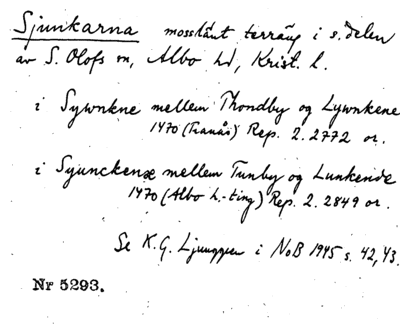 Sjunkarna mosslänt terräng i s. delen
av S. Olofs sn, Albo hd, Krist. l.
i Sywnkne mellem Thondby og Lywnkene
1470 (Tranås) Rep. 2. 2772 or.
i Syunckenæ mellem Tunby og Lunkende
1470 (Albo h.-ting) Rep. 2. 2849 or.
Se K. G. Ljunggren i NoB 1945 s. 42, 43.
Nr 5293.